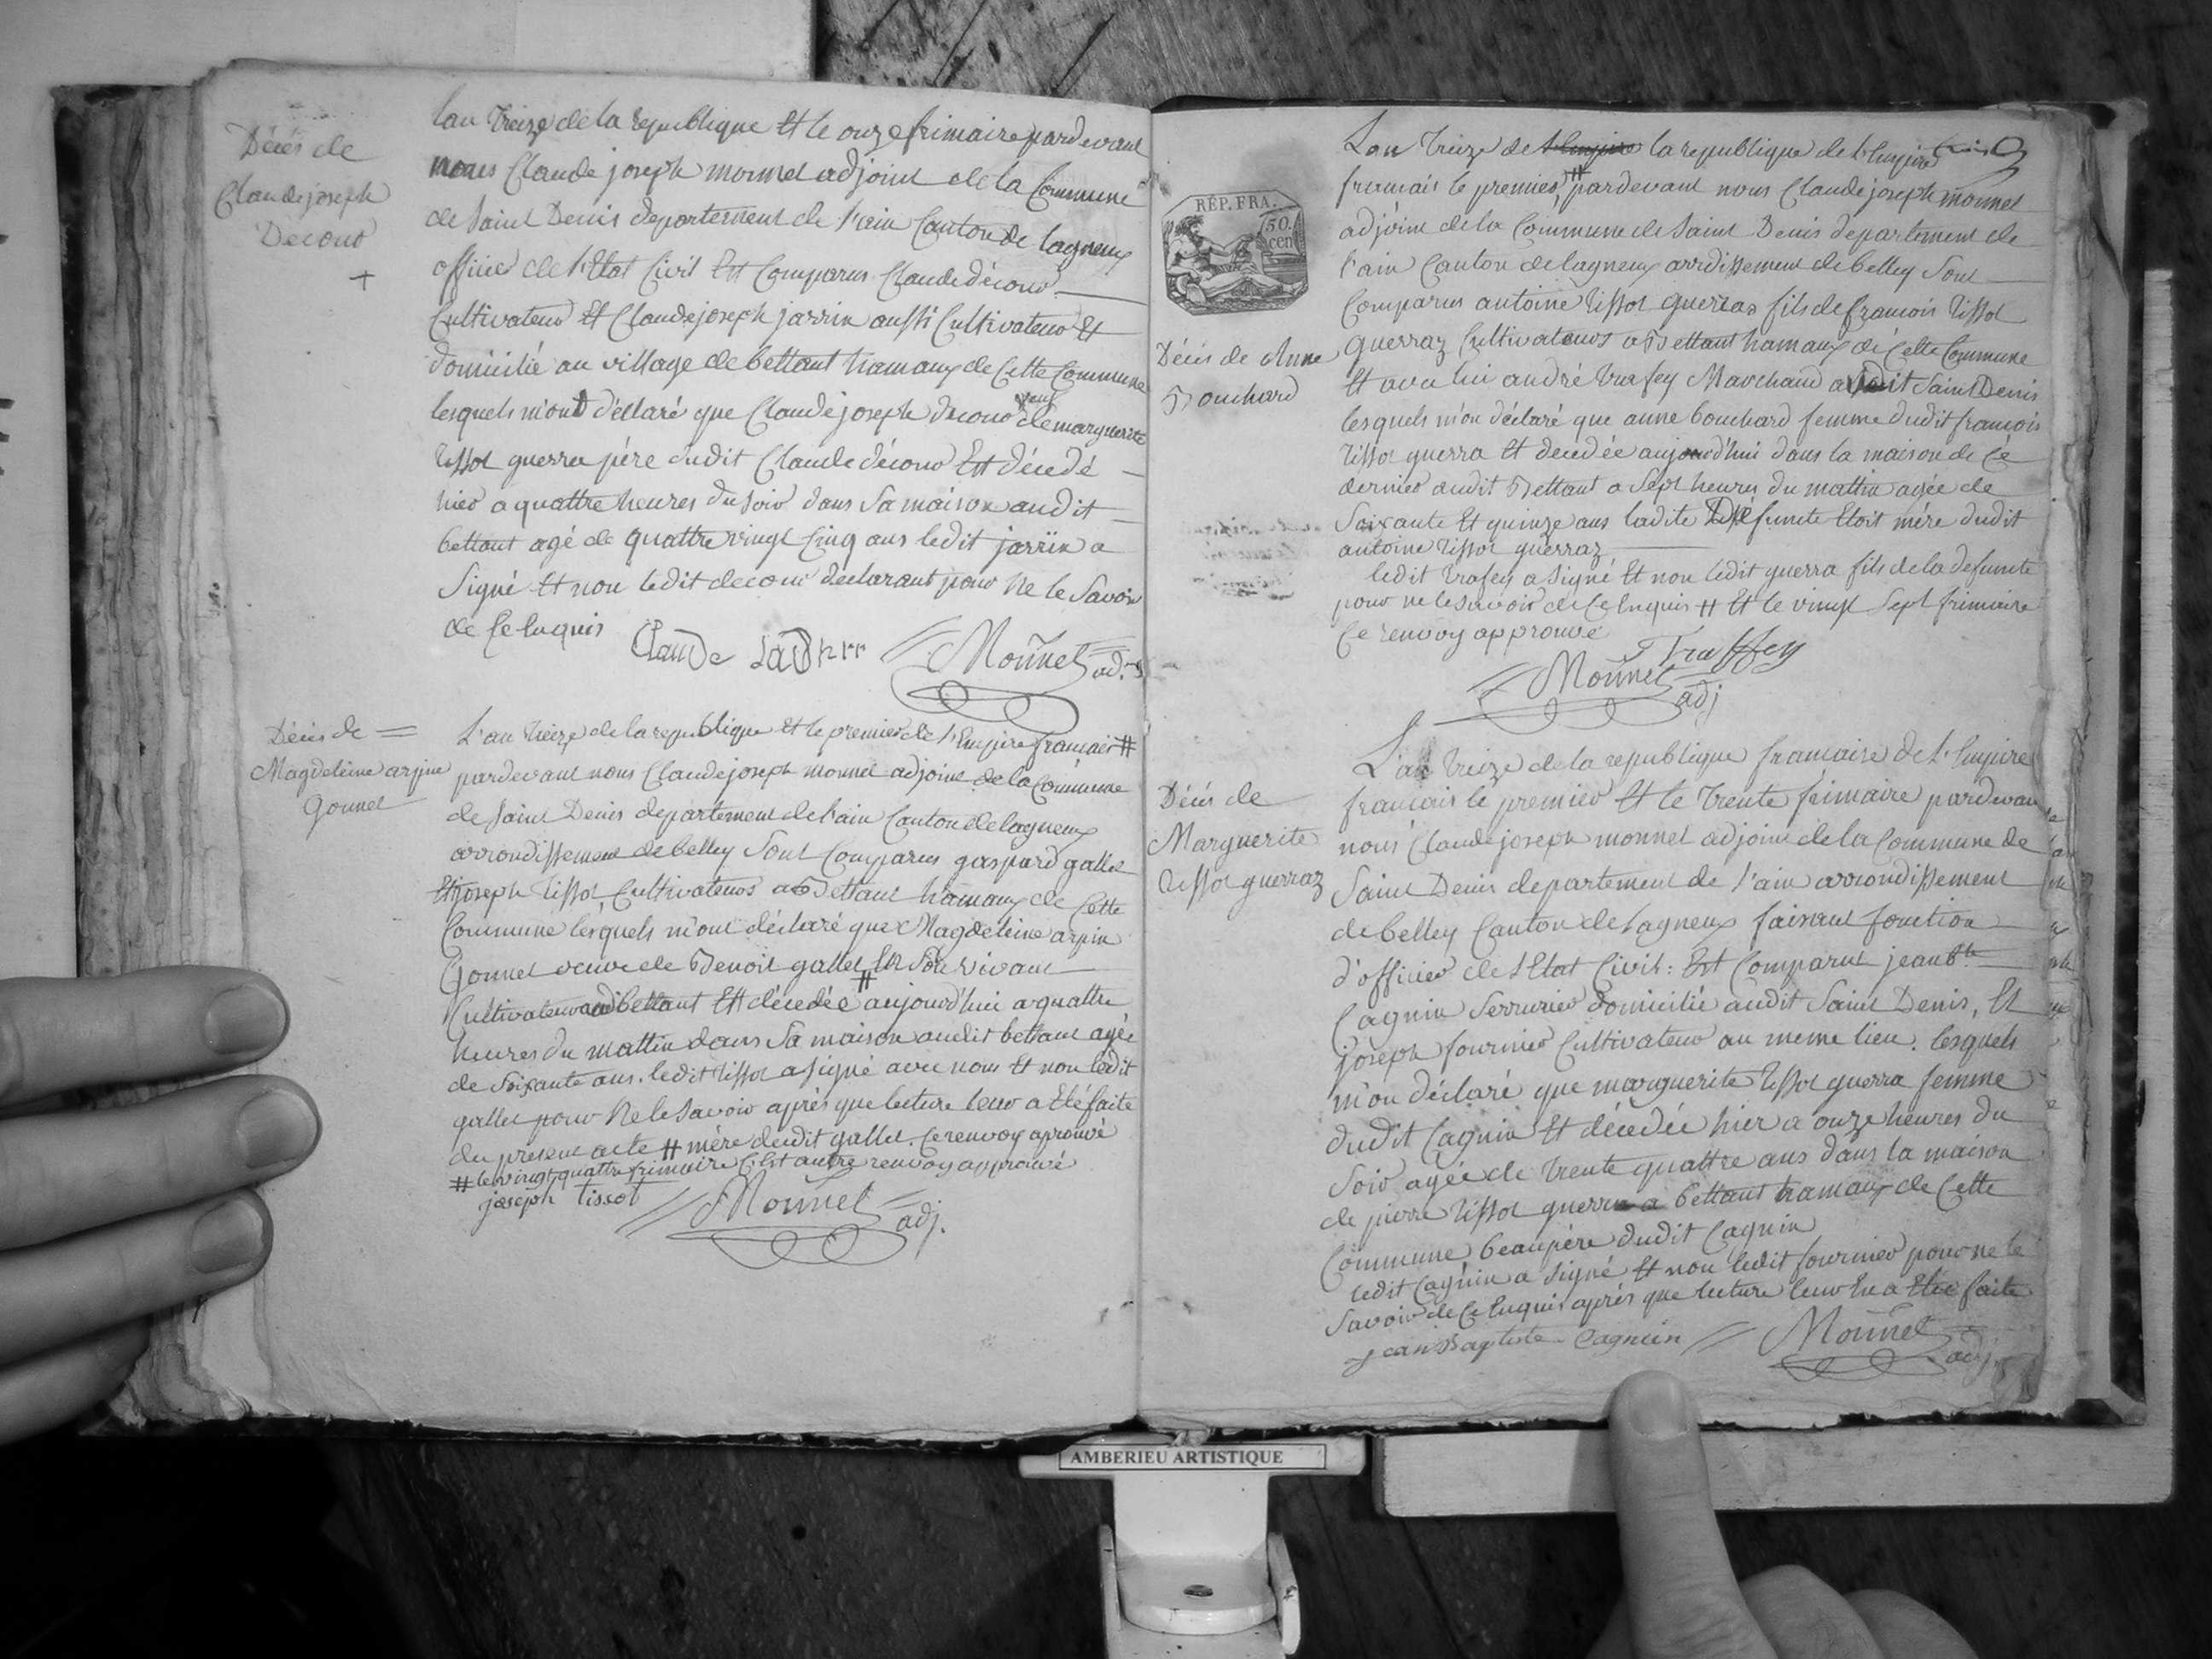 Décés de
Claude joseph
Decour
+
lan treize de la republique Et le onze frimaire pardevant
nous Claude joseph monnet adjoint de la Commune
de Saint Denis departement de l'ain Canton de lagneux
officier de l'Etat Civil Est Comparus Claude décour
Cultivateur Et Claude joseph jarrin aussi Cultivateur Et
domicilié au village de bettant hamaux de Cette Commune
lesquels m'ont déclaré que Claude joseph decour veuf de marguerite
tissot guerra père dudit Claude décour Est décedé
hier a quattre heures du soir dans Sa maison audit
bettant agé de quattre vingt Cinq ans ledit jarrin a
Signé Et non ledit decour declarant pour ne le Savoir
de Ce Enquis
Claude
Monnet adj
Décés de
Magdeleine arpin
Gonnet
L'an treize de la republique Et le premier de l'Empire francais #
pardevant nous Claude joseph monnet adjoint de la Commune
de Saint Denis departement de l'ain Canton de lagneux
arrondissement de belley Sont Comparus gaspard gallet
Et joseph tissot Cultivateurs a Bettant hamaux de Cette
Commune lesquels m'ont déclaré que Magdeleine arpin
Gonnet veuve de Benoit gallet En Son vivant
Cultivateur audit bettant Est décedée # aujourd'hui a quattre
heures du mattin dans Sa maison audit bettant agée
de Soixante ans. ledit tissot a signé avec nous Et non ledit
gallet pour ne le Savoir après que lecture leur a Eté faite
du present acte # mère dudit gallet. Ce renvoy aprouvé
# le vingt quattre frimaire C'est autre renvoy approuvé
joseph tissot
Monnet adj.
REP. FRA.
50. cen
Décés de Anne
Bouchard
Lan treize de l'Empire la republique de l'Empire
francais le premier, # pardevant nous Claude joseph monnet
adjoint de la Commune de Saint Denis departement de
l'ain Canton de lagneux arrdissement de belley Sont
Comparus antoine tissot guerraz fils de francois tissot
guerraz Cultivateurs a Bettant hamaux de Cette Commune
Et avec lui andré trafey Marchand audit Saint Denis
lesquels m'on déclaré que anne bouchard femme dudit francois
tissot guerra Et decedée aujourd'hui dans la maison de Ce
dernier audit Bettant a Sept heures du mattin agée de
Soixante Et quinze ans ladite Defunte Etoit mère dudit
antoine tissot guerraz
ledit trafey a Signé Et non ledit guerra fils de la defunte
pour ne le Savoir de Ce Enquis # Et le vingt Sept frimaire
Ce renvoy approuvé
Traffey
Monnet adj
Décés de
Marguerite
tissot guerraz
L'an treize de la republique francaise de l'Empire
francais le premier Et le trente frimaire pardevant
nous Claude joseph monnet adjoint de la Commune de
Saint Denis departement de l'ain arrondissement
de belley Canton de lagneux faisant fonction
d'officier de l'Etat Civil: Est Comparut jean Bte
Cagnin Serrurier domicilié audit Saint Denis, Et
joseph fournier Cultivateur au meme lieu. lesquels
m'on déclaré que marguerite tissot guerra femme
dudit Cagnin Et décedée hier a onze heures du
Soir agée de trente quattre ans dans la maison
de pierre tissot guerra a bettant hamaux de Cette
Commune beaupère dudit Cagnin
ledit Cagnin a Signé Et non ledit fournier pour ne le
Savoir de Ce Enquis après que lecture leur En a Etée faite
jean Baptiste Cagnin
Monnet adj
AMBERIEU ARTISTIQUE